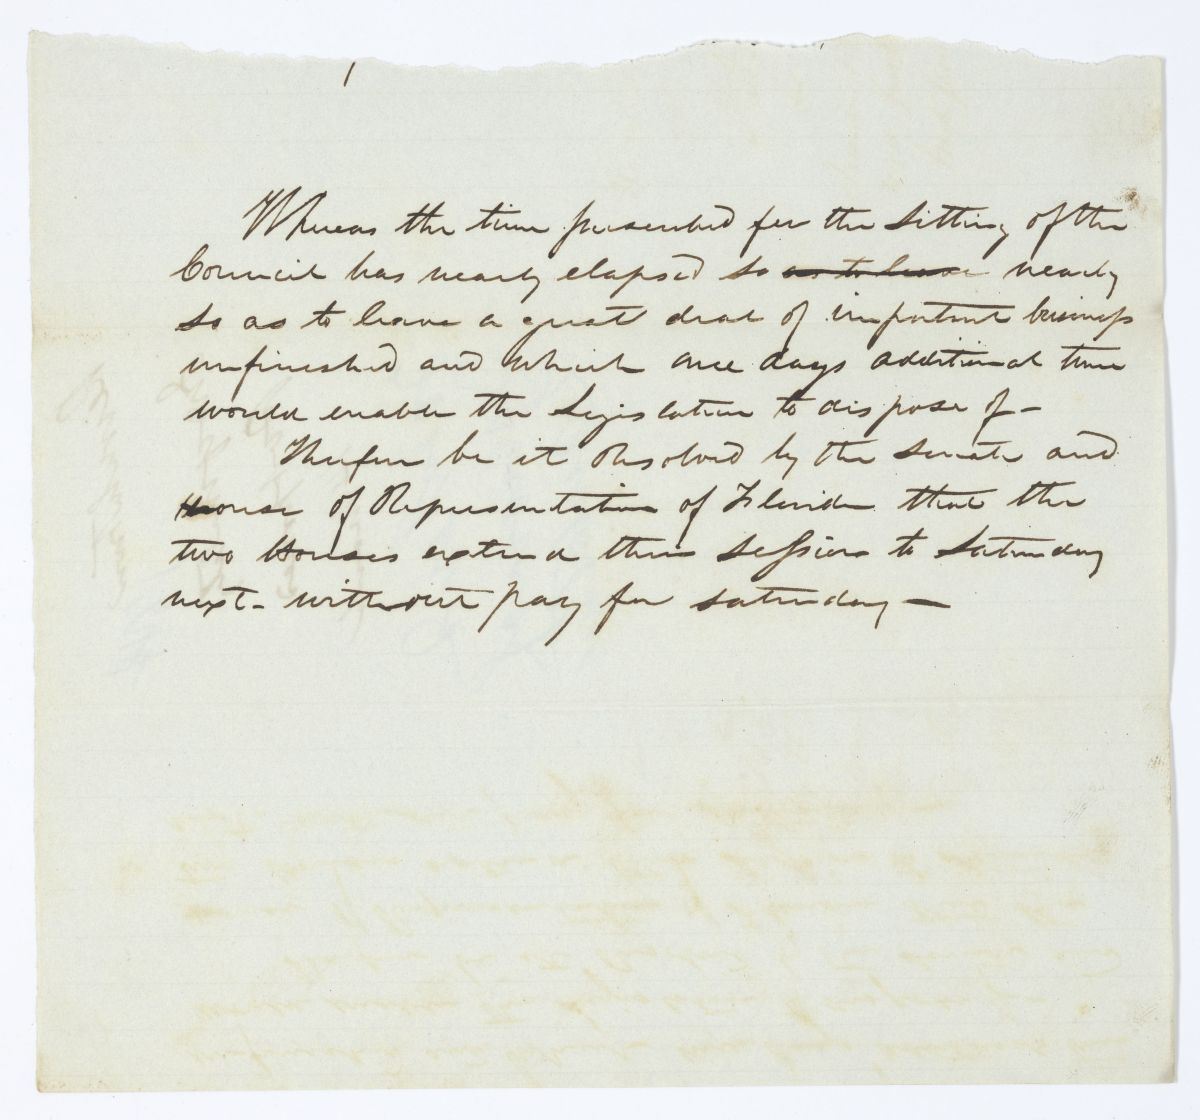 Whereas the time prescribed for the sitting of the
Council has nearly elapsed so as to leave nearly
so as to leave a great deal of important business
unfinished and which one days additional time
would enable the Legislature to dispose of—
Therefore be it Resolved by the Senate and
House of Representatives of Florida that the
two Houses extend their session to Saturday
next— without pay for saturday—